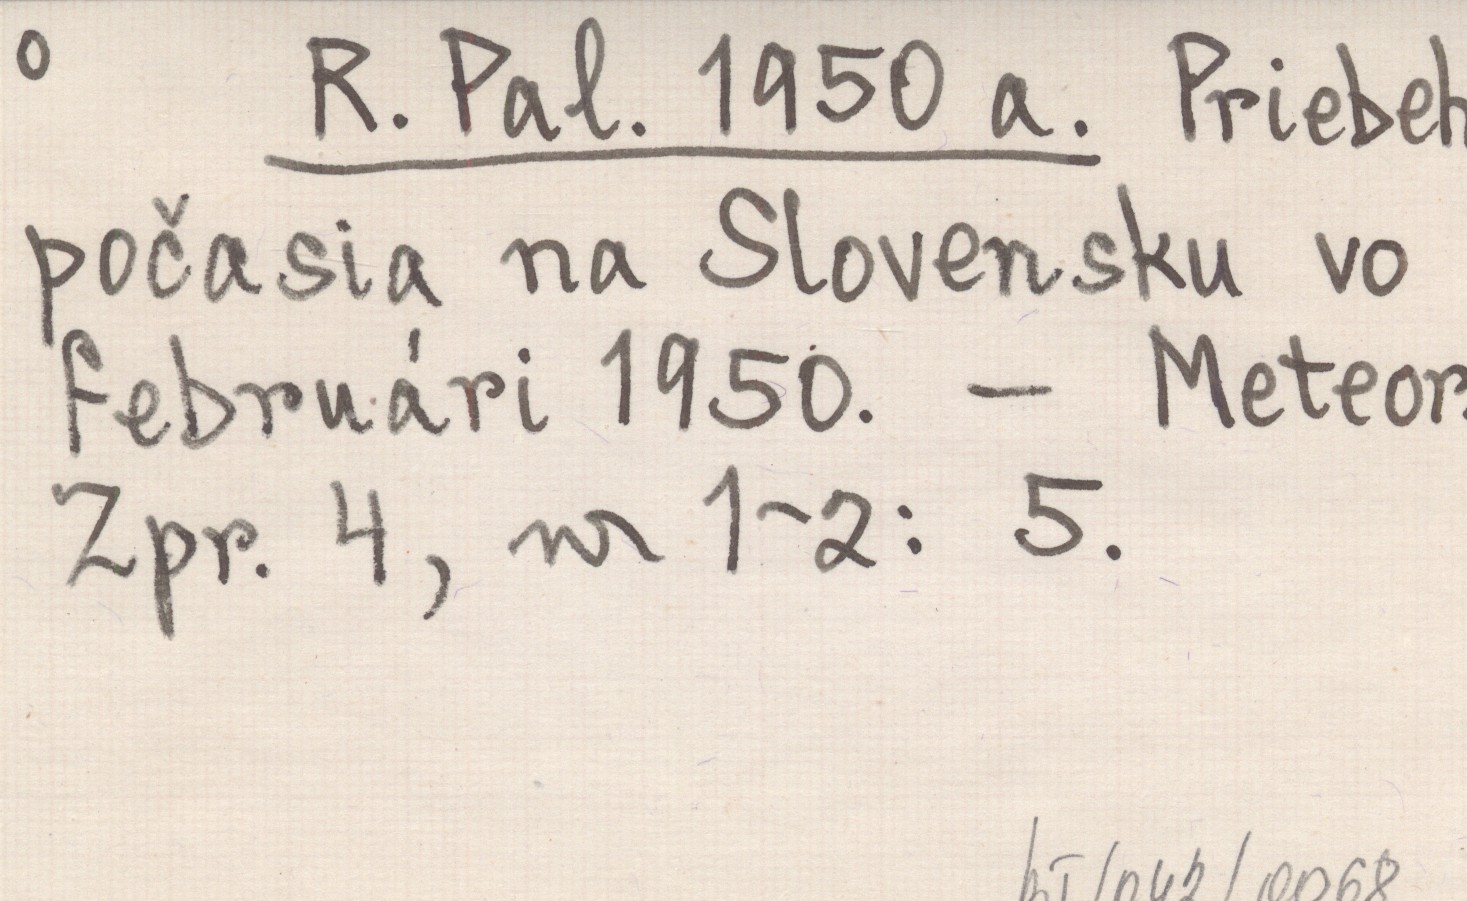 o R. Pal. 1950 a. Priebeh
počasia na Slovensku vo
februári 1950. – Meteor.
Zpr. 4, nr 1-2: 5.